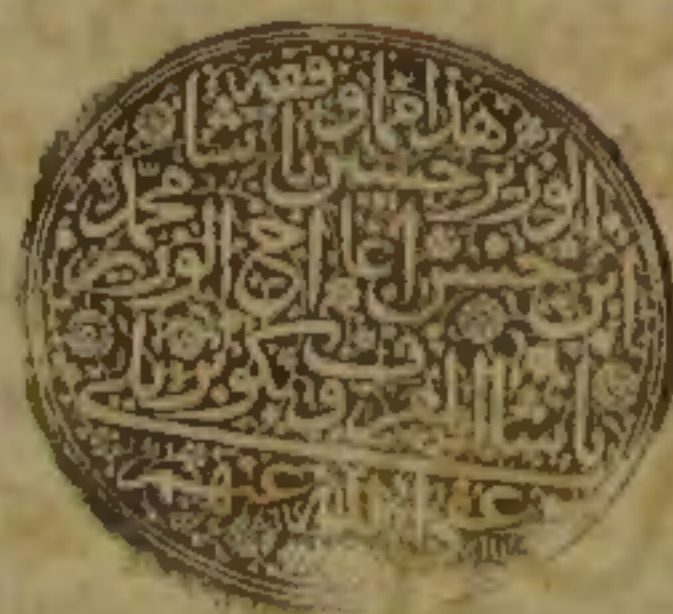 هذا ما وقفه
الوزير حسين باشا
ابن حسن اغا اخى الوزير محمد
باشا المعروف بكوپريلى
عفا الله عنهم